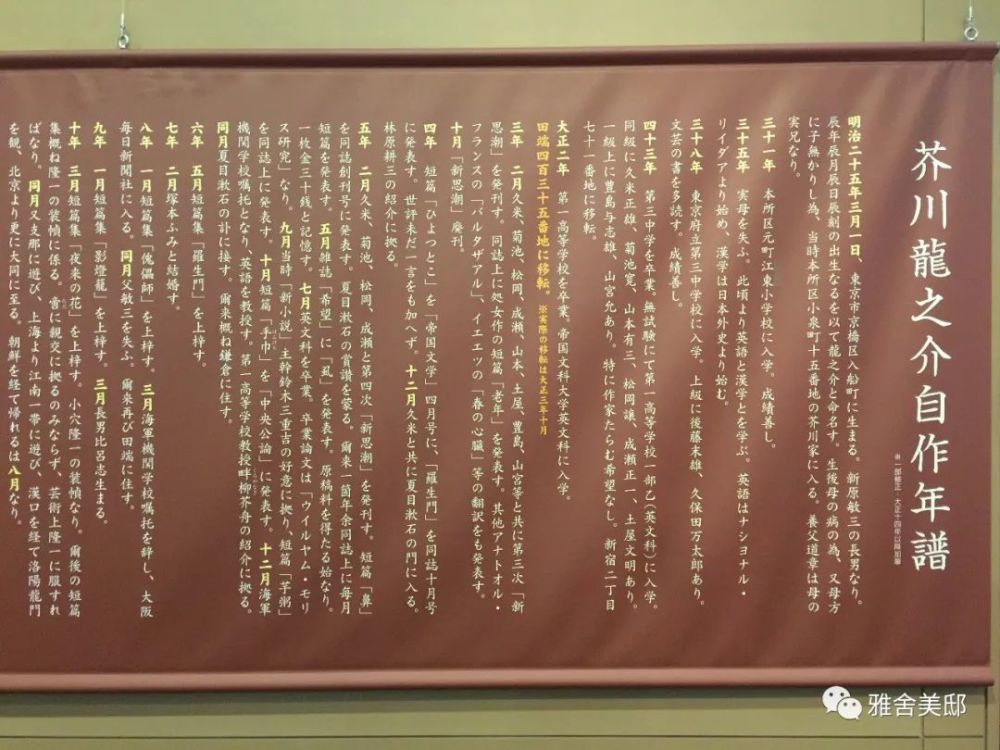 芥川龍之介自作年譜
※一部修正・大正十四年以降加筆
明治二十五年三月一日、東京市京橋区入船町に生まる。新原敏三の長男なり。
辰年辰月辰日辰刻の出生なるを以て龍之介と命名す。生後母の病の為、又母方
に子無かりし為、当時本所区小泉町十五番地の芥川家に入る。養父道章は母の
実兄なり。
三十一年 本所区元町江東小学校に入学。成績善し。
三十五年 実母を失ふ。此頃より英語と漢学とを学ぶ。英語はナショナル・
リイダアより始め、漢学は日本外史より始む。
三十八年 東京府立第三中学校に入学。上級に後藤末雄、久保田万太郎あり。
文芸の書を多読す。成績善し。
四十三年 第三中学を卒業。無試験にて第一高等学校一部乙(英文科)に入学。
同級に久米正雄、菊池寛、山本有三、松岡譲、成瀬正一、土屋文明あり。
一級上に豊島与志雄、山宮允あり。特に作家たらむ希望なし。新宿二丁目
七十一番地に移転。
大正二年 第一高等学校を卒業。帝国文科大学英文科に入学。
田端四百三十五番地に移転。※実際の移転は大正三年十月
三年 二月久米、菊池、松岡、成瀬、山本、土屋、豊島、山宮等と共に第三次「新
思潮」を発刊す。同誌上に処女作の短篇「老年」を発表す。其他アナトオル・
フランスの「バルタザアル」、イエエツの「春の心臓」等の翻訳をも発表す。
十月「新思潮」廃刊。
四年 短篇「ひよつとこ」を「帝国文学」四月号に、「羅生門」を同誌十月号
に発表す。世評未だ一言をも加へず。十二月久米と共に夏目漱石の門に入る。
林原耕三の紹介に拠る。
五年 二月久米、菊池、松岡、成瀬と第四次「新思潮」を発刊す。短篇「鼻」
を同誌創刊号に発表す。夏目漱石の賞讃を蒙る。爾来一箇年余同誌上に毎月
短篇を発表す。五月雑誌「希望」に「虱」を発表す。原稿料を得たる始なり。
一枚金三十銭と記憶す。七月英文科を卒業。卒業論文は「ウイルヤム・モリ
ス研究」なり。九月当時「新小説」主幹鈴木三重吉の好意に拠り、短篇「芋粥」
を同誌上に発表す。十月短篇「手巾」を「中央公論」に発表す。十二月海軍
機関学校嘱托となり、英語を教授す。第一高等学校教授畔柳芥舟の紹介に拠る。
同月夏目漱石の訃に接す。爾来概ね鎌倉に住す。
六年 五月短篇集「羅生門」を上梓す。
七年 二月塚本ふみと結婚す。
八年 一月短篇集「傀儡師」を上梓す。三月海軍機関学校嘱托を辞し、大阪
毎日新聞社に入る。同月父敏三を失ふ。爾来再び田端に住す。
九年 一月短篇集「影燈籠」を上梓す。三月長男比呂志生まる。
十年 三月短篇集「夜来の花」を上梓す。小穴隆一の装幀なり。爾後の短篇
集概ね隆一の装幀に係る。啻に親交に拠るのみならず、芸術上隆一に服すれ
ばなり。同月又支那に遊び、上海より江南一帯に遊び、漢口を経て洛陽龍門
を観、北京より更に大同に至る。朝鮮を経て帰れるは八月なり。
雅舍美邸